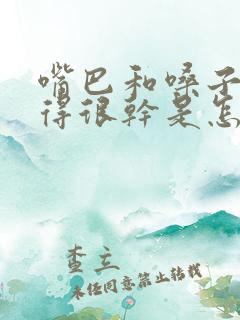 嘴巴和嗓子
得很幹是怎
查立
未经同意禁止转载